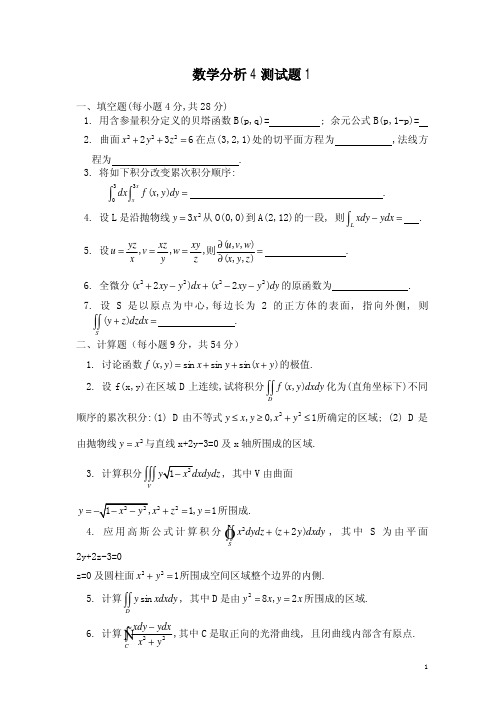 数学分析4测试题1
一、填空题(每小题4分,共28分)
1. 用含参量积分定义的贝塔函数B(p,q)= ; 余元公式B(p,1-p)=
2. 曲面x²+2y²+3z²=6在点(3,2,1)处的切平面方程为 ,法线方
程为 .
3. 将如下积分改变累次积分顺序:
∫₀³dx∫ₓ³ˣf(x,y)dy= .
4. 设L是沿抛物线y=3x²从O(0,0)到A(2,12)的一段, 则∫_L xdy−ydx= .
5. 设u=yz/x,v=xz/y,w=xy/z,则∂(u,v,w)/∂(x,y,z)= .
6. 全微分(x²+2xy−y²)dx+(x²−2xy−y²)dy的原函数为 .
7. 设S是以原点为中心,每边长为2的正方体的表面, 指向外侧, 则
∬_S(y+z)dzdx= .
二、计算题（每小题9分, 共54分）
1. 讨论函数f(x,y)=sin x+sin y+sin(x+y)的极值.
2. 设f(x,y)在区域D上连续,试将积分∬_D f(x,y)dxdy化为(直角坐标下)不同
顺序的累次积分:(1) D由不等式y≤x,y≥0,x²+y²≤1所确定的区域; (2) D是
由抛物线y=x²与直线x+2y-3=0及x轴所围成的区域.
3. 计算积分∭_V y√(1−x²)dxdydz, 其中V由曲面
y=−√(1−x²−z²),x²+z²=1,y=1所围成.
4. 应用高斯公式计算积分∯_S x²dydz+(z+2y)dxdy, 其中S为由平面
2y+2z-3=0
z=0及圆柱面x²+y²=1所围成空间区域整个边界的内侧.
5. 计算∬_D y sin xdxdy, 其中D是由y²=8x,y=2x所围成的区域.
6. 计算∮_C (xdy−ydx)/(x²+y²),其中C是取正向的光滑曲线, 且闭曲线内部含有原点.
1